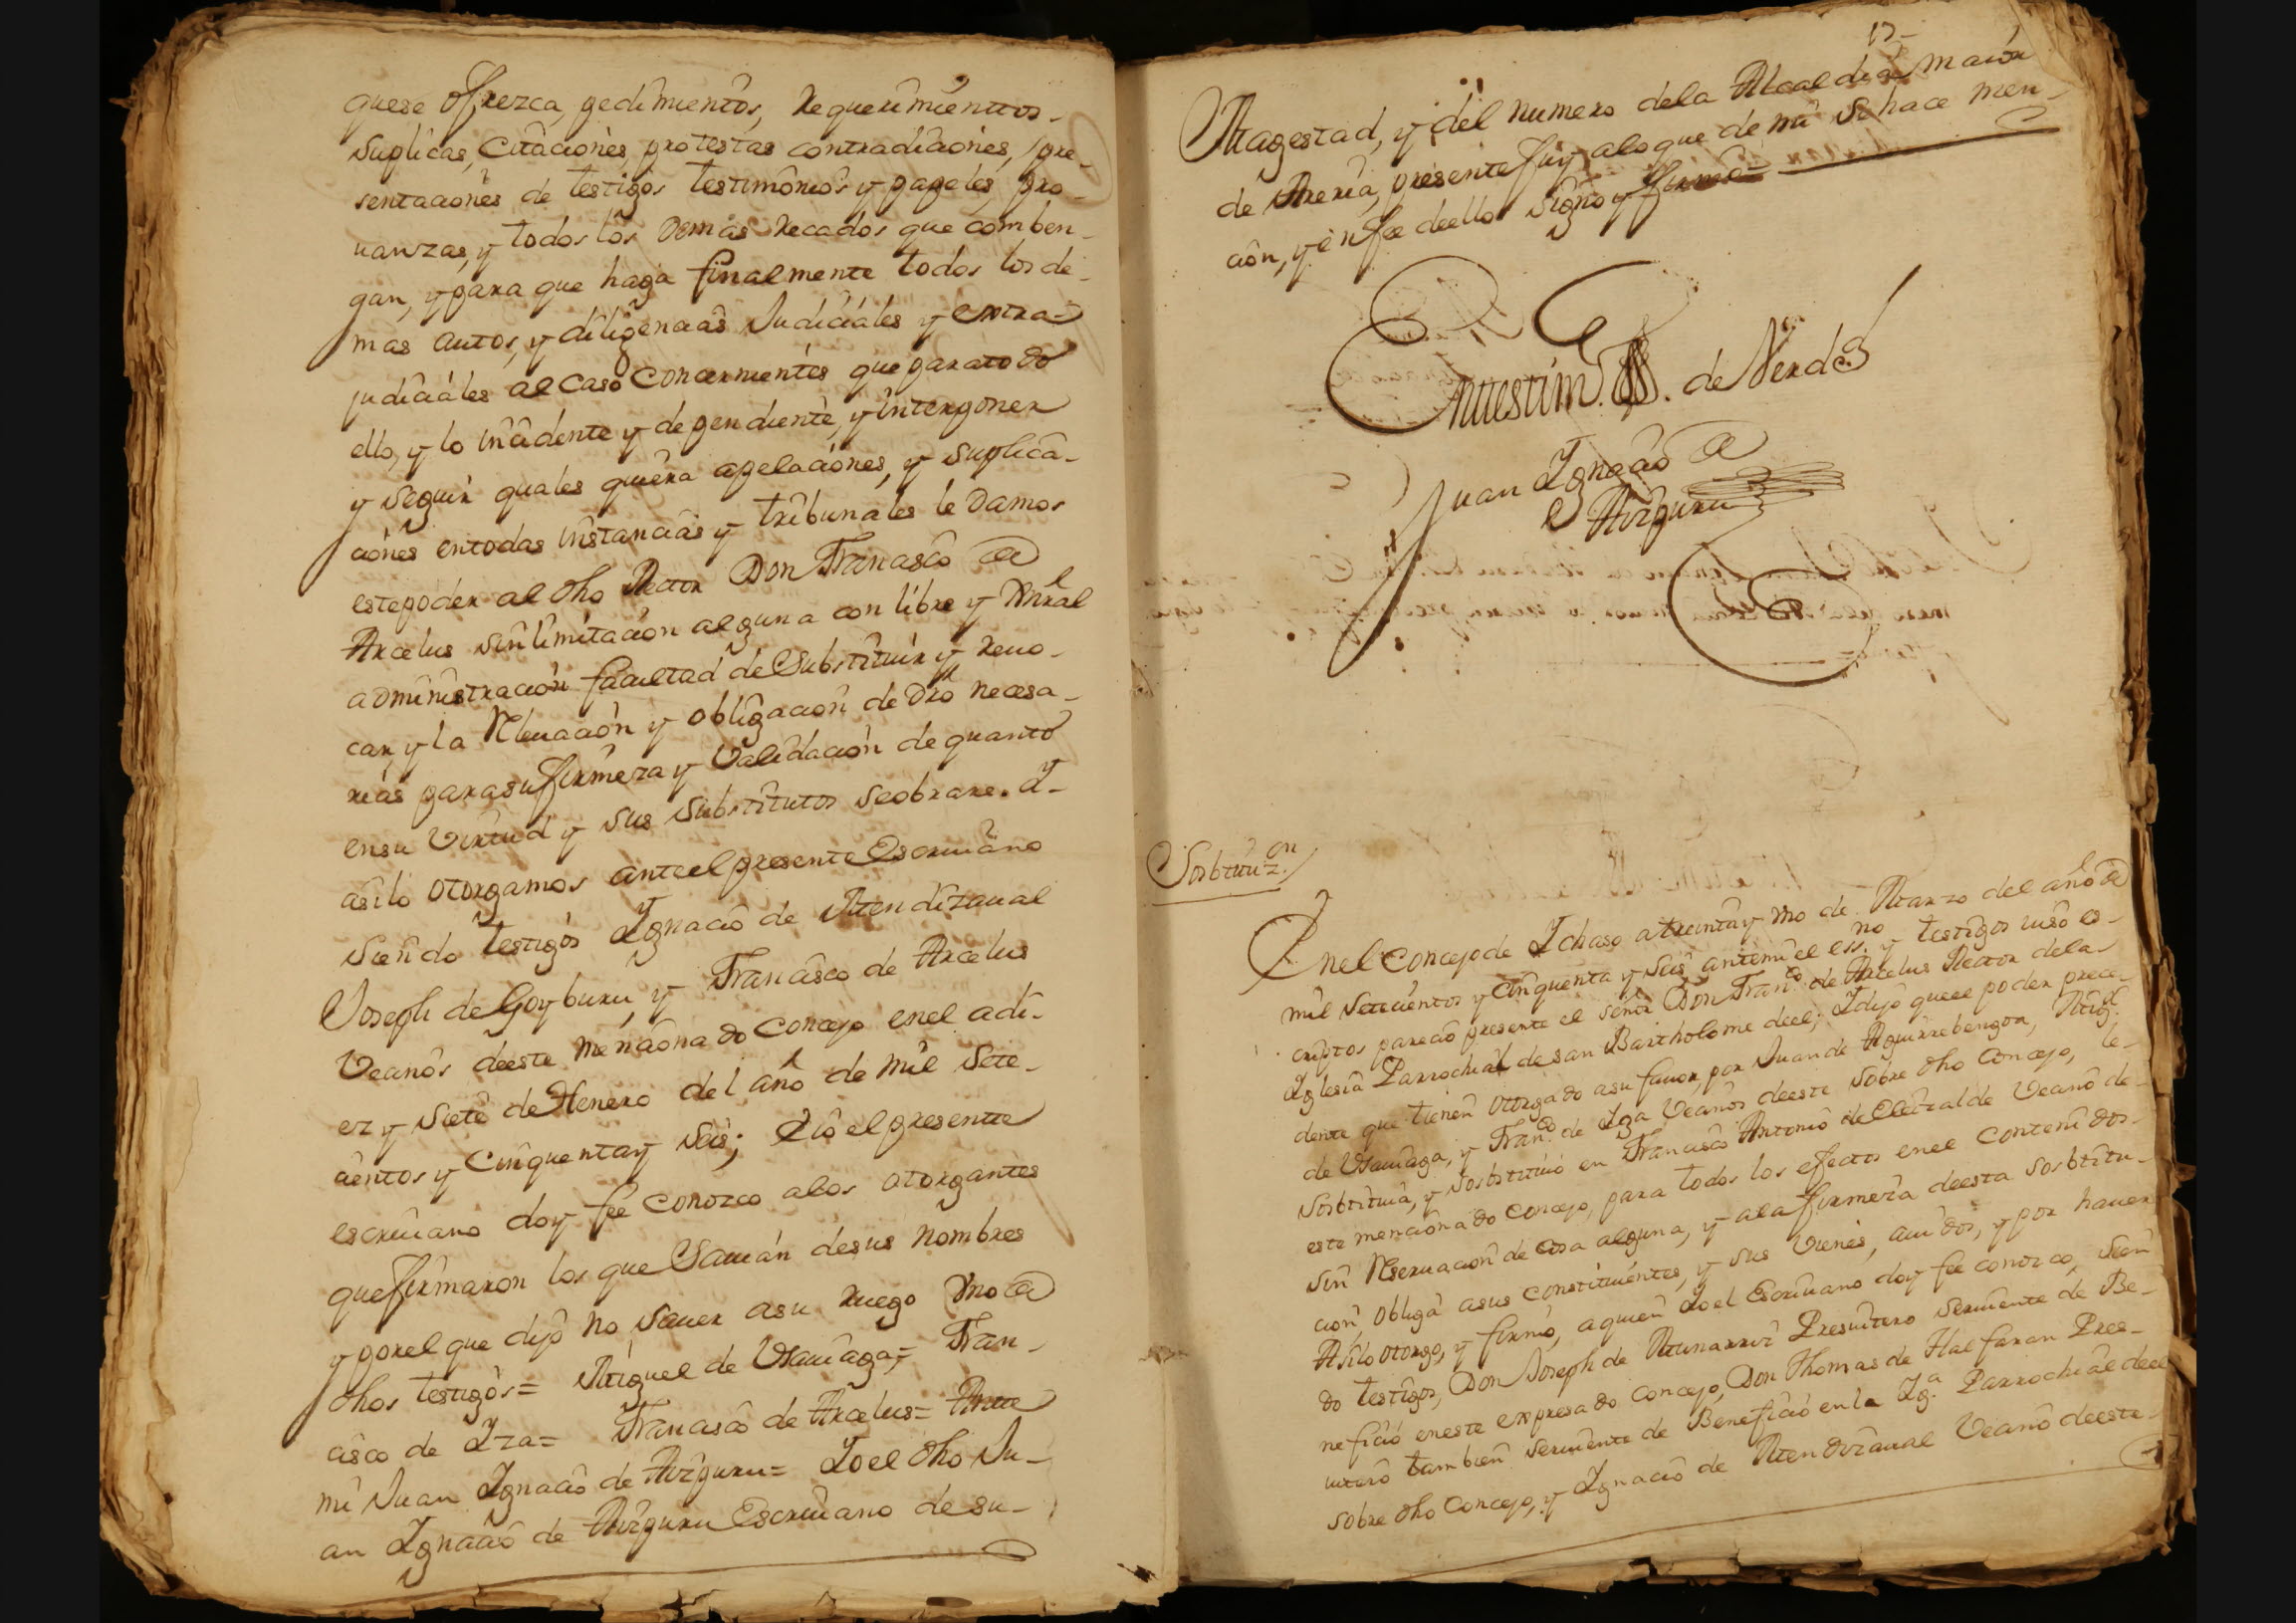 quese ofrezca, pedimientos, requerimienttos
suplicas, Citaciones, protestas contradiciones, pre-
sentaciones de testigos testimonios y papeles, pro-
uanzas, y todos los demas recados que comben-
gan, y para que haga finalmente todos los de-
mas autos, y diligencias Judiciales y extra-
judiciales al caso concernientes que para todo
ello, y lo incidente y dependiente, y interponer
y seguir quales quiera apelaciones, y suplica-
ciones entodas instancias y tribunales le damos
estepoder al dho Rector Don Francisco de
Arcelus sin limitacion alguna con libre y Gnral
administracion facultad de Substituir y reuo-
car, y la Releuacion y obligacion de dro necesa-
rias para su firmeza y Validacion de quanto
ensu Virtud y sus substitutos seobrare. Y
asilo otorgamos anteel presente Escriuano
siendo testigos Ygnacio de Mendizaual
Joseph de Goyburu, y Francisco de Arcelus
Vecinos deeste mencionado Concejo enel a di-
ez y siete de Henero del año de mil sete-
cientos y Cinquentay seis; Yo el presente
escriuano doy fee conozco alos otorgantes
quefirmaron los que Sauian desus nombres
y porel que dijo no sauer asu ruego vno de
dhos testigos= Miguel de Vsauiaga= Fran-
cisco de Yza= Francisco de Arcelus= Ante
mi Juan Ygnacio de Aizpuru= Yo el dho Ju-
an Ygnacio de Aizpuru Escriuano de su-
Magestad, y del numero dela Alcaldia maior
de Areria, presente fui alo que de mi se hace men-
cion, y en fee deello signo y firmo=
Enttestim. de Verdd
Juan Ygnacio de
Aizpuru
Sosbtituzon
Enel Concejo de Ychaso a treinta y vno de Marzo del año de
mil setecientos y cinquenta y seis, antemi el essno y testigos infraes-
criptos parecio presente el señor Don Franco de Arcelus Rector dela
Yglesia Parrochial de san Bartholome deel; Y dijo queel poder prece-
dente que tienen otorgado asu fauor, por Juan de Aguirrebengoa, Migl
de Vsauiaga, y Franco de Yza Vecinos deeste sobre dho Concejo, le
sosbtituia, y sosbtituio en Francisco Antonio de Eleizalde Vecino de
este mencionado Concejo, para todos los efectos enel contenidos
sin Reseruacion de cosa alguna, y ala firmeza deesta sosbtitu-
cion, obliga asus constituientes, y sus Vienes, auidos, y por hauer
Asilo otorgo, y firmo, aquien Yo el Escriuano doy fee conozco, sien
do testigos, Don Joseph de Munarriz Presuitero siruiente de Be-
neficio eneste expresado Concejo, Don Thomas de Halfaran Pres-
uitero tambien seruiente de Beneficio en la Yga Parrochial deel
sobre dho Concejo, y Ygnacio de Mendizaual Vecino deeste